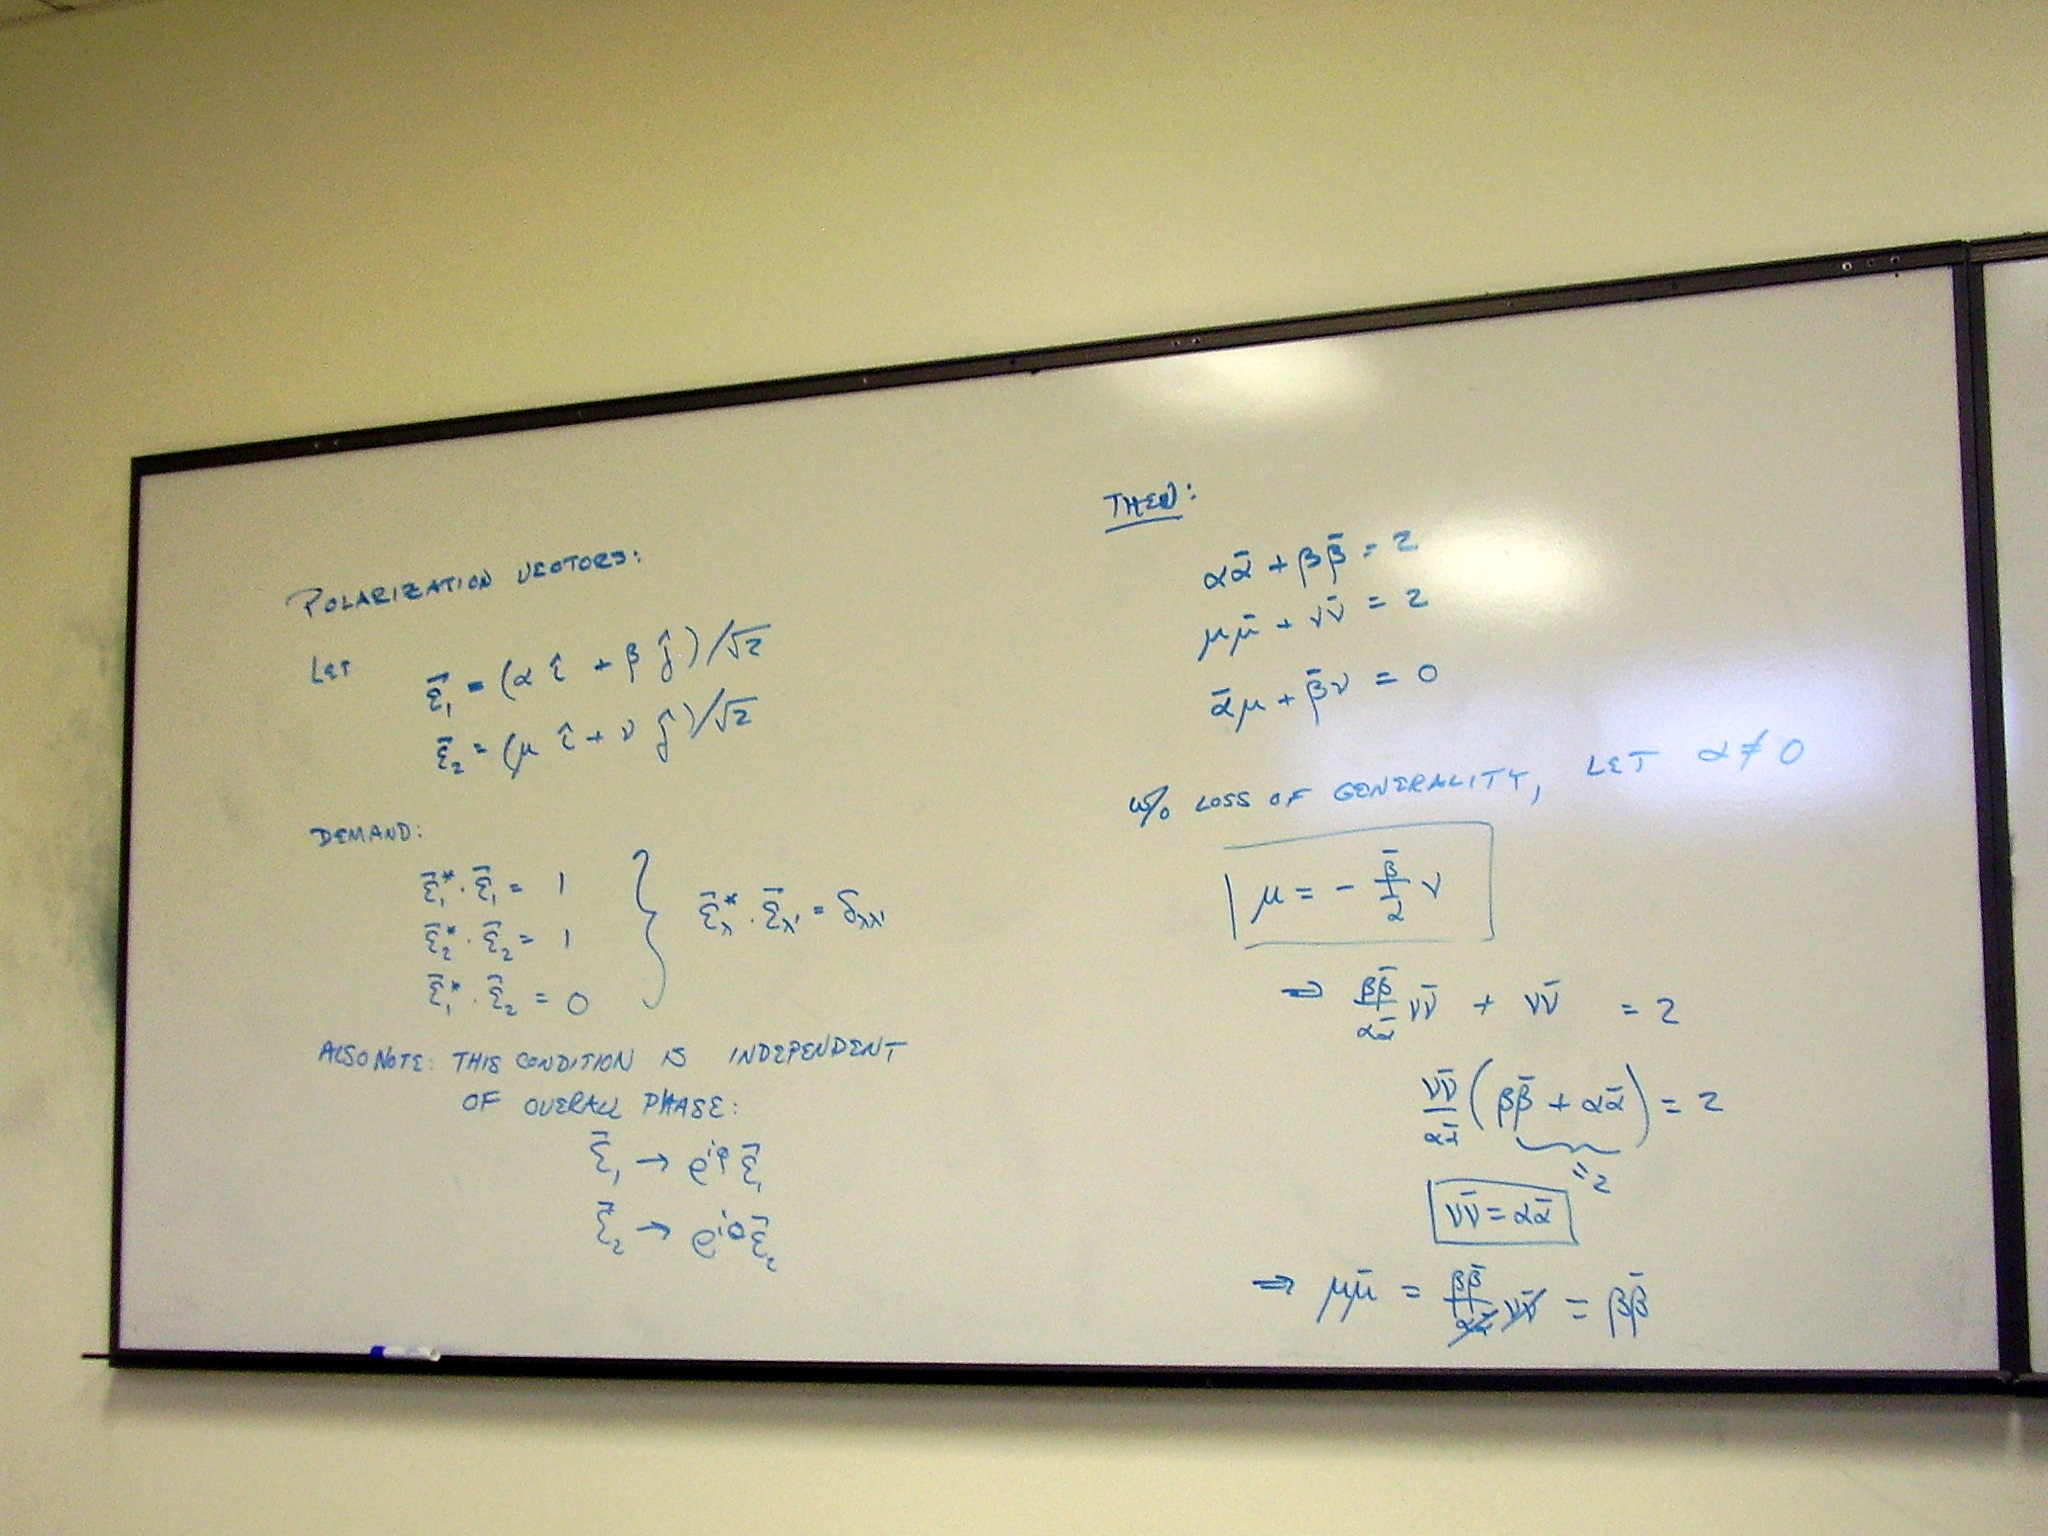 POLARIZATION VECTORS:
LET
ε̄₁ = (α î + β ĵ)/√2
ε̄₂ = (μ î + ν ĵ)/√2
DEMAND:
ε̄₁* · ε̄₁ = 1
ε̄₂* · ε̄₂ = 1
ε̄₁* · ε̄₂ = 0
ε̄λ* · ε̄λ' = δλλ'
ALSO NOTE: THIS CONDITION IS INDEPENDENT
OF OVERALL PHASE:
ε̄₁ → e^{iφ} ε̄₁
ε̄₂ → e^{iθ} ε̄₂
THEN:
αᾱ + ββ̄ = 2
μμ̄ + νν̄ = 2
ᾱμ + β̄ν = 0
w/o LOSS OF GENERALITY, LET α ≠ 0
μ = - β̄/ᾱ ν
⇒ ββ̄/αᾱ νν̄ + νν̄ = 2
νν̄/αᾱ (ββ̄ + αᾱ) = 2
= 2
νν̄ = αᾱ
⇒ μμ̄ = ββ̄/αᾱ νν̄ = ββ̄